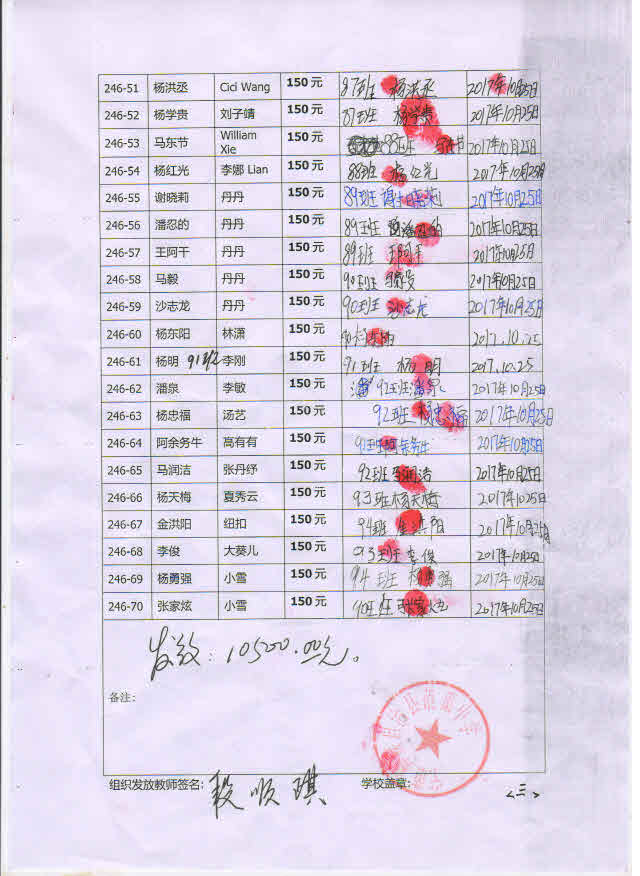 246-51 杨洪丞 Cici Wang 150元 87班 杨洪丞 2017年10月25日
246-52 杨学贵 刘子靖 150元 87班 杨学贵 2017年10月25日
246-53 马东节 William Xie 150元 88班 2017年10月25日
246-54 杨红光 李娜 Lian 150元 88班 2017年10月25日
246-55 谢晓莉 丹丹 150元 89班 2017年10月25日
246-56 潘忍的 丹丹 150元 89班 2017年10月25日
246-57 王阿千 丹丹 150元 89班 2017年10月25日
246-58 马毅 丹丹 150元 90班 2017年10月25日
246-59 沙志龙 丹丹 150元 90班 沙志龙 2017年10月25日
246-60 杨东阳 林潇 150元 2017.10.25
246-61 杨明 91班 李刚 150元 91班 杨明 2017.10.25
246-62 潘泉 李敏 150元 92班 潘泉 2017年10月25日
246-63 杨忠福 汤艺 150元 92班 杨忠福 2017年10月25日
246-64 阿余务牛 高有有 150元 阿余务牛 2017年10月25日
246-65 马润洁 张丹纾 150元 92班 马润洁 2017年10月25日
246-66 杨天梅 夏秀云 150元 93班 杨天梅 2017年10月25日
246-67 金洪阳 纽扣 150元 94班 金洪阳 2017年10月25日
246-68 李俊 大葵儿 150元 93班 李俊 2017年10月25日
246-69 杨勇强 小雪 150元 94班 杨勇强 2017年10月25日
246-70 张家炫 小雪 150元 2017年10月25日
发放：10500.00元。
备注：
组织发放教师签名：段顺琪 学校盖章：
<三>